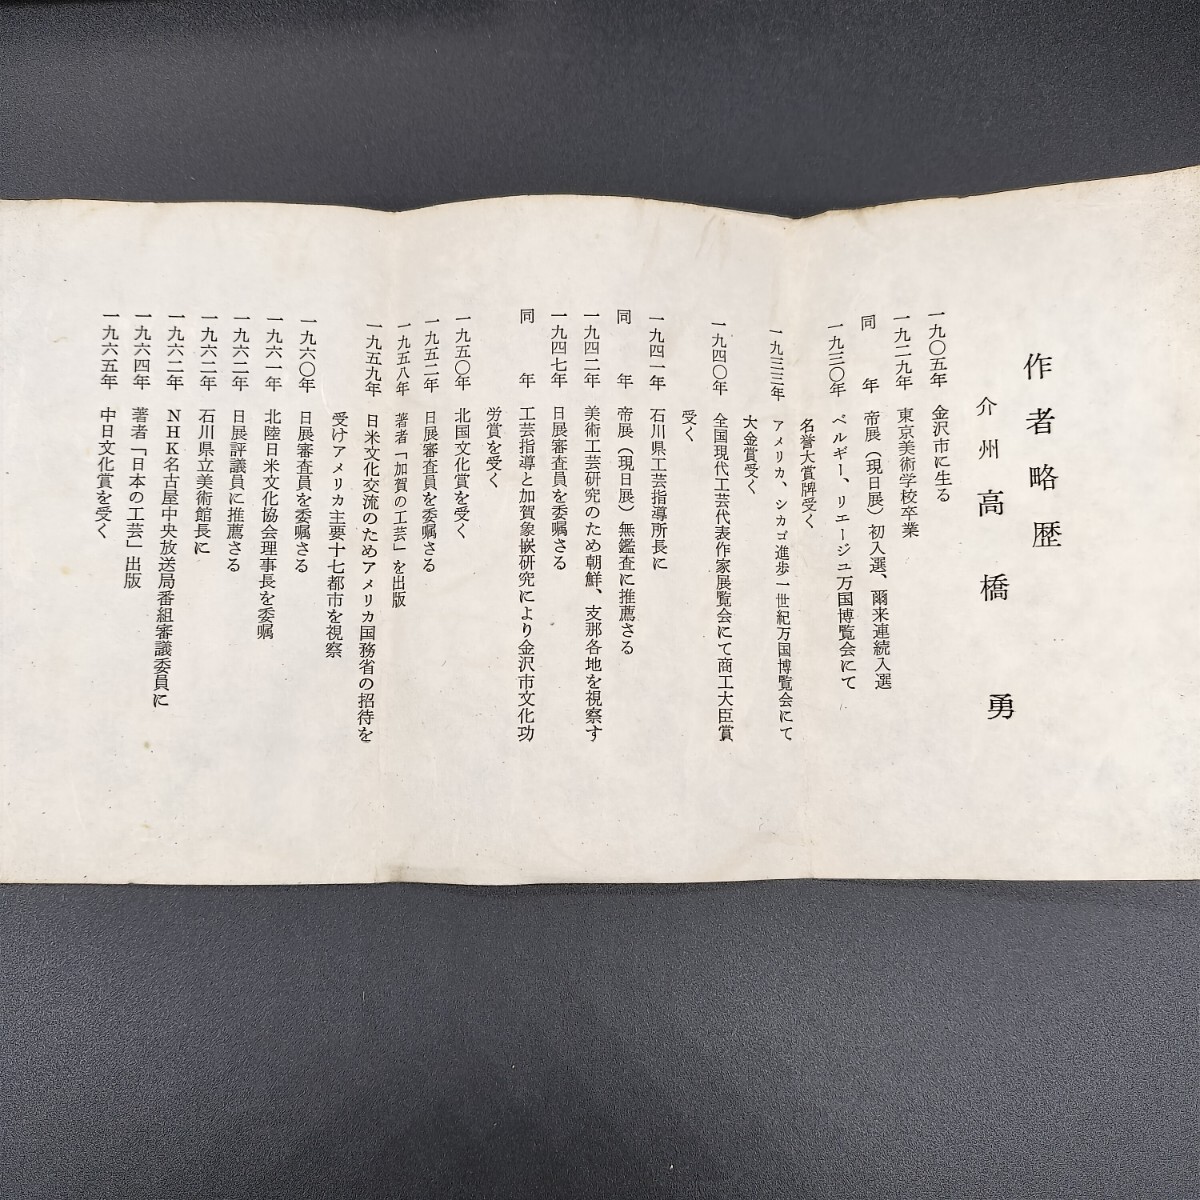 作者略歴
介州 高橋 勇
一九〇五年 金沢市に生る
一九二九年 東京美術学校卒業
同 年 帝展（現日展）初入選、爾来連続入選
一九三〇年 ベルギー、リエージュ万国博覧会にて
名誉大賞牌受く
一九三三年 アメリカ、シカゴ進歩一世紀万国博覧会にて
大金賞受く
一九四〇年 全国現代工芸代表作家展覧会にて商工大臣賞
受く
一九四一年 石川県工芸指導所長に
同 年 帝展（現日展）無鑑査に推薦さる
一九四二年 美術工芸研究のため朝鮮、支那各地を視察す
一九四七年 日展審査員を委嘱さる
同 年 工芸指導と加賀象嵌研究により金沢市文化功
労賞を受く
一九五〇年 北国文化賞を受く
一九五二年 日展審査員を委嘱さる
一九五八年 著者「加賀の工芸」を出版
一九五九年 日米文化交流のためアメリカ国務省の招待を
受けアメリカ主要十七都市を視察
一九六〇年 日展審査員を委嘱さる
一九六一年 北陸日米文化協会理事長を委嘱
一九六二年 日展評議員に推薦さる
一九六二年 石川県立美術館長に
一九六二年 NHK名古屋中央放送局番組審議委員に
一九六四年 著者「日本の工芸」出版
一九六五年 中日文化賞を受く